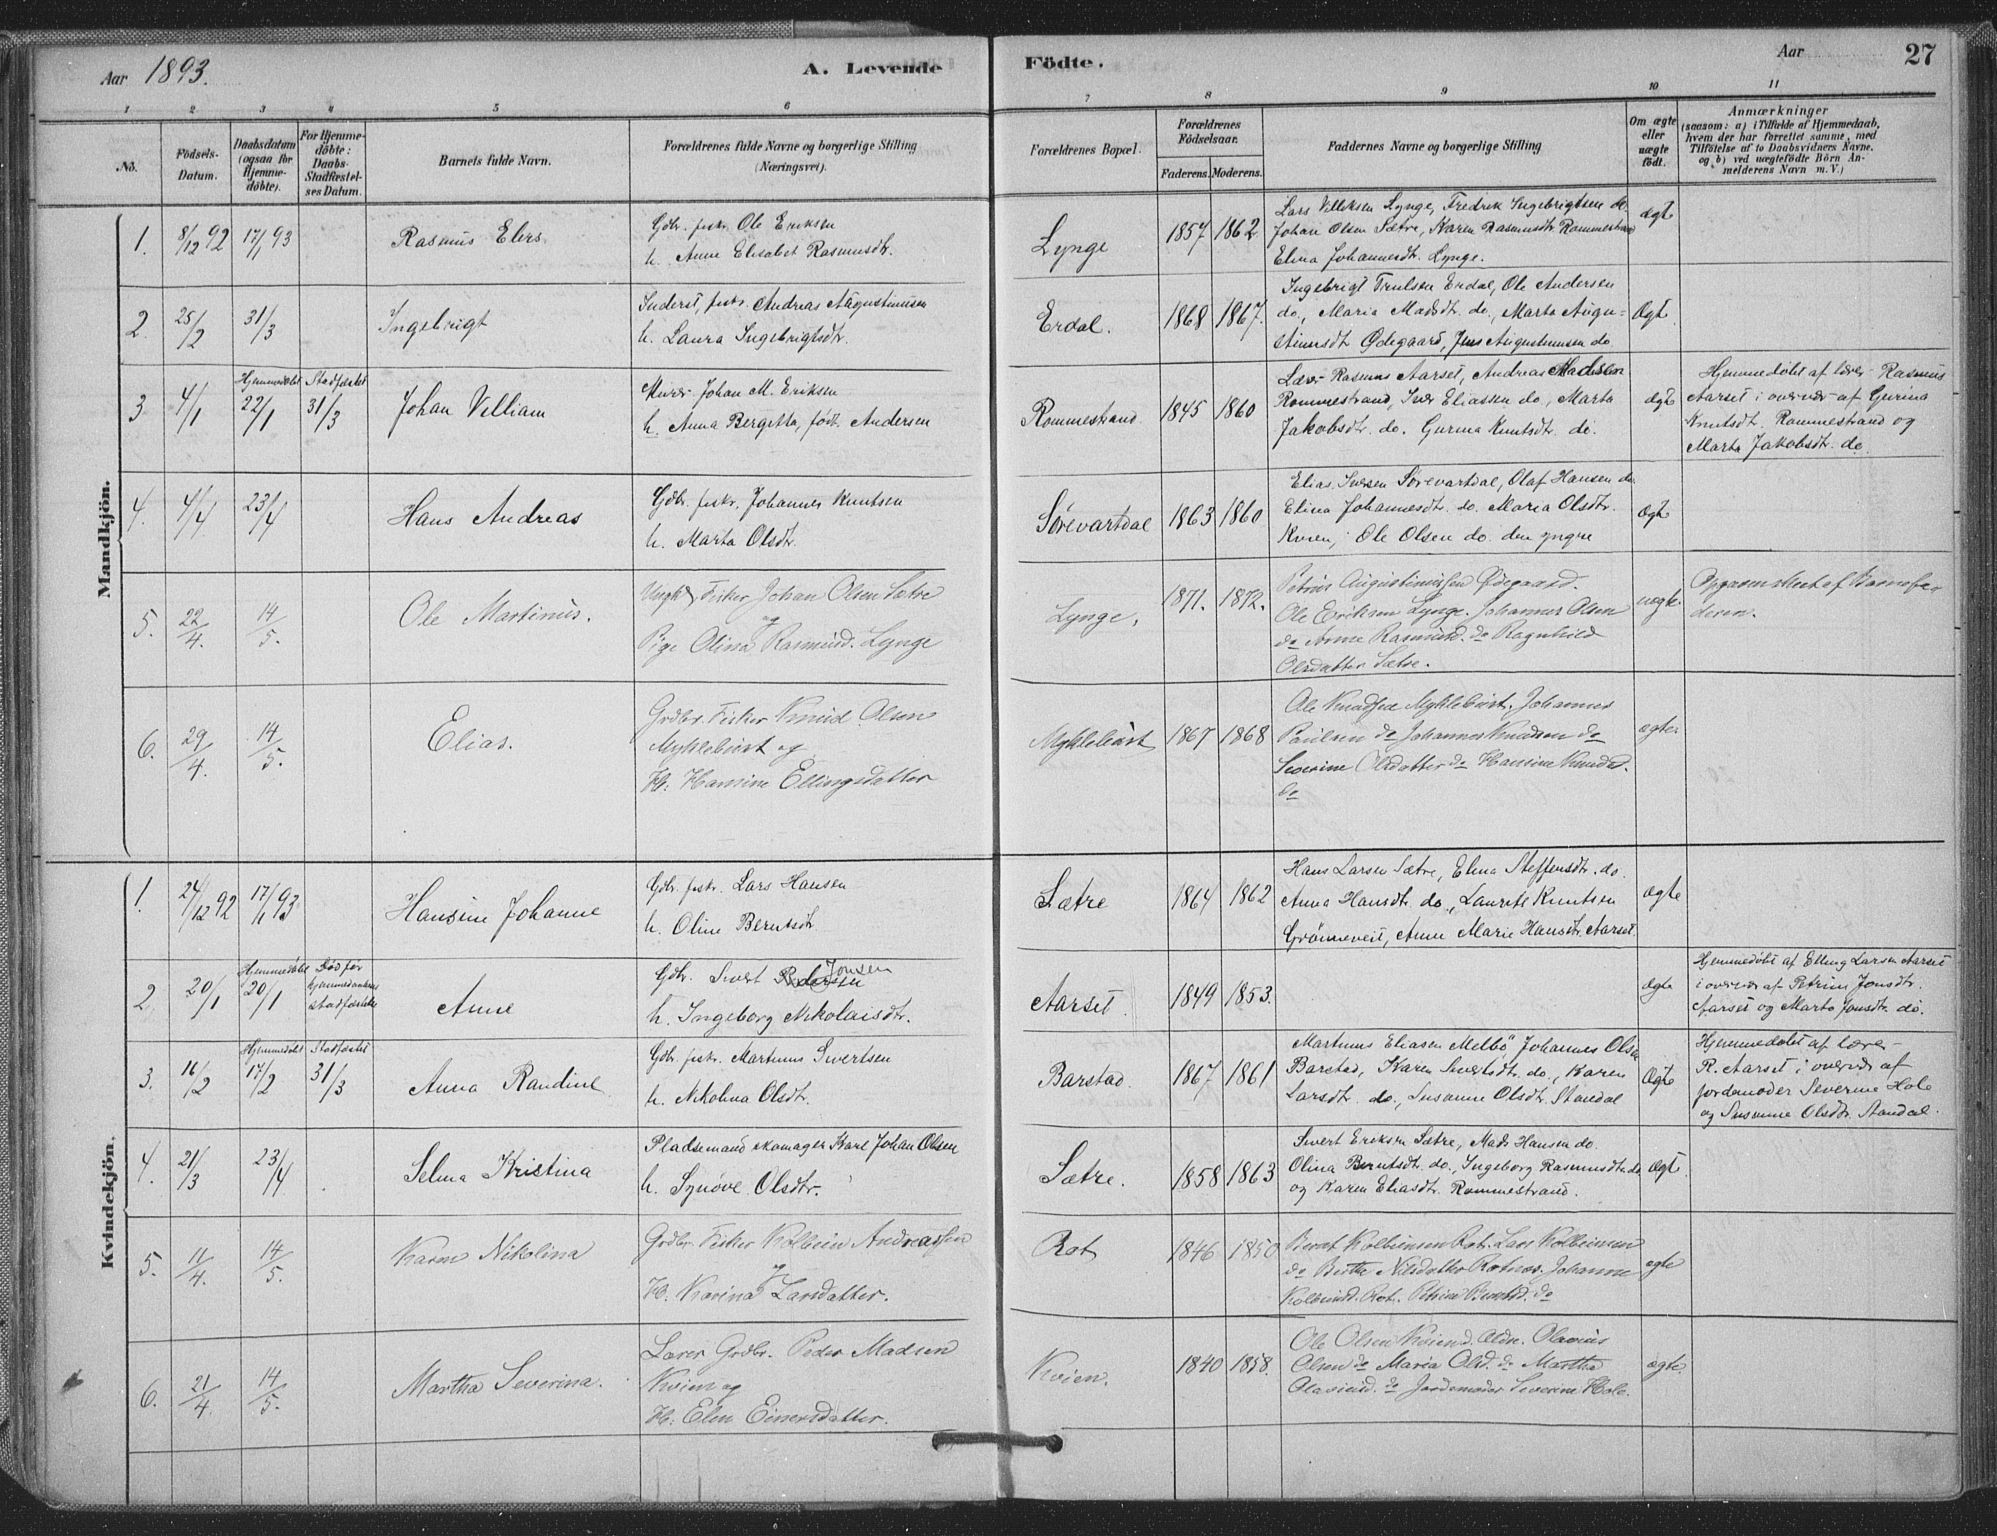 Aar 1893. A. Levende Födte. Aar 27
1 2 3 4 5 6 7 8 9 10 11
No.
Födsels-
Datum.
Daabsdatum
(ogsaa for
Hjemme-
döbte).
For Hjemme-
döbte:
Daabs-
Stadfæstel-
ses Datum.
Barnets fulde Navn.
Forældrenes fulde Navne og borgerlige Stilling
(Næringsvei).
Forældrenes Bopæl.
Forældrenes
Födselsaar.
Faderens. Moderens.
Faddernes Navne og borgerlige Stilling
Om ægte
eller
uægte
födt.
Anmærkninger
(saasom: a) i Tilfælde af Hjemmedaab,
hvem der har forrettet samme, med
Tilföielse af to Daabsvidners Navne,
og b) ved uægtefödte Börn An-
melderens Navn m. V.)
Mandkjön.
1. 8/12 92 17/1 93 Rasmus Elers
Gdbr. fiskr. Ole Eriksen
h. Anne Elisabet Rasmusdtr.
Lynge 1857 1862
Lars Villiksen Lynge, Fredrik Ingebrigtsen do.
Johan Olsen Sætre, Karen Rasmusdtr Rommestrand
Elina Johannesdtr. Lynge.
ægte
2 25/2 31/3 Ingebrigt
Inderst, fiskr. Andreas Augustinusen
h. Laura Ingebrigtsdtr.
Erdal. 1868 1867.
Ingebrigt Trulsen Erdal, Ole Andersen
do., Maria Madsdtr. do., Marta Augu=
stinusdt Ødegaard, Jens Augustinusen do
Ægt.
3 4/1 Hjemmedöbt 22/1 Stadfæstet 31/3 Johan Villiam
Murer Johan M. Eriksen
h. Anna Bergitta, född. Andersen
Rommestrand. 1845 1860
Lærer Rasmus Aarset, Andreas Madsen
Rommestrand, Iver Eliassen do, Marta
Jakobsdtr. do. Gurina Knutsdtr. do.
ægte
Hjemmedöbt af lærer Rasmus
Aarset i overvær af Gurina
Knutsdt. Rommestrand og
Marta Jakobsdt. do.
4. 4/4 23/4 Hans Andreas
Gdbr. fiskr. Johannes Knutsen
h. Marta Olsdtr.
Sørevartdal 1863 1860
Elias Iversen Sørevartdal, Olaf Hansen do
Elina Johannesdtr. do. Maria Olsdtr.
Kvien, Ole Olsen do. den yngre
Ægte
5. 22/4. 14/5. Ole Martinus.
Ungk. Fisker Johan Olsen Sætre
og
Pige Olina Rasmusd. Lynge
Lynge, 1871. 1872.
Petrus Augustinussen Ødegaard.
Ole Eriksen Lynge. Johannes Olsen
do Anne Rasmusd. do Ragnhild
Olsdatter Sætre.
uægte
Opgaven skeet af Barnefa-
deren.
6. 29/4. 14/5. Elias.
Grdbr. Fisker Knud Olsen
Myklebust og
H. Hansine Ellingsdatter
Myklebust 1867 1868
Ole Knudsen Myklebust. Johannes
Paulsen do Johannes Knudsen do
Severine Olsdatter do Hansine Knudsd.
do
ægte
Kvindekjön.
1. 24/12 92 17/1 93 Hansine Johanne
Gdbr. fiskr. Lars Hansen
h. Oline Berntsdtr.
Sætre 1864 1862
Hans Larsen Sætre, Elina Steffensdtr. do.
Anna Hansdtr. do., Laurits Knutsen
Grönneveit, Anne Marie Hansdtr. Aarset
Ægte
2 20/1 Hjemmedöbt 20/1 Död før
hjemmedaabens
stadfæstelse Anne
Gdbr. Sivert Pedersen Jonsen
h. Ingeborg Nikolaisdtr.
Aarset. 1849 1853.
Ægte
Hjemmedöbt af Elling Larsen Aarset
i overvær af Petrine Jonsdtr.
Aarset og Marta Jonsdtr. do.
3. 16/2 Hjemmedöbt 17/2 Stadfæstet 31/3 Anna Randine
Gdbr. fiskr. Martinus Sivertsen
h. Nikolina Olsdtr.
Barstad. 1867 1861
Martinus Eliasen Melbö Johannes Olsen
Barstad, Karen Sivertsdtr. do., Karen
Larsdt. do., Susanne Olsdtr. Standal
Ægte
Hjemmedöbt af lærer
R. Aarset i overvær af
jordemoder Severine Hole
og Susanne Olsdtr. Standal.
4. 21/3 23/4 Selma Kristina
Pladsemand skomager Karl Johan Olsen
h. Synöve Olsdtr.
Sætre. 1858 1863
Sivert Eriksen Sætre, Mads Hansen do.
Olina Berntsdtr. do., Ingeborg Rasmusdtr. do
og Karen Eliasdtr. Rommestrand.
Ægt.
5. 11/4. 14/5. Karen Nikolina
Grdbr. Fisker Kolbein Andreassen
og
H. Karina Larsdatter.
Rot 1846 1850
Bernt Kolbeinsen Rot. Lars Kolbeinsen
do Berthe Nilsdatter Rotnæs. Johanne
Kolbeinsd. Rot. Petrine Berntsd. do
ægte
6. 21/4. 14/5. Martha Severina.
Lærer Grdbr. Peder Madsen
Kvien og
H. Elen Einersdatter.
Kvien. 1840 1858.
Ole Olsen Kvien d. Eldre. Olavius
Olsen do Maria Olsd. do Martha
Olaviusd. do Jordemoder Severine Hole.
ægte.